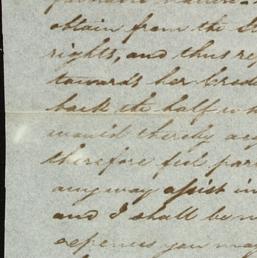 obtain from the
rights, and thus
towards her
back the half
would thereby
therefore feel
anyway assist in
and I shall be
expenses you may